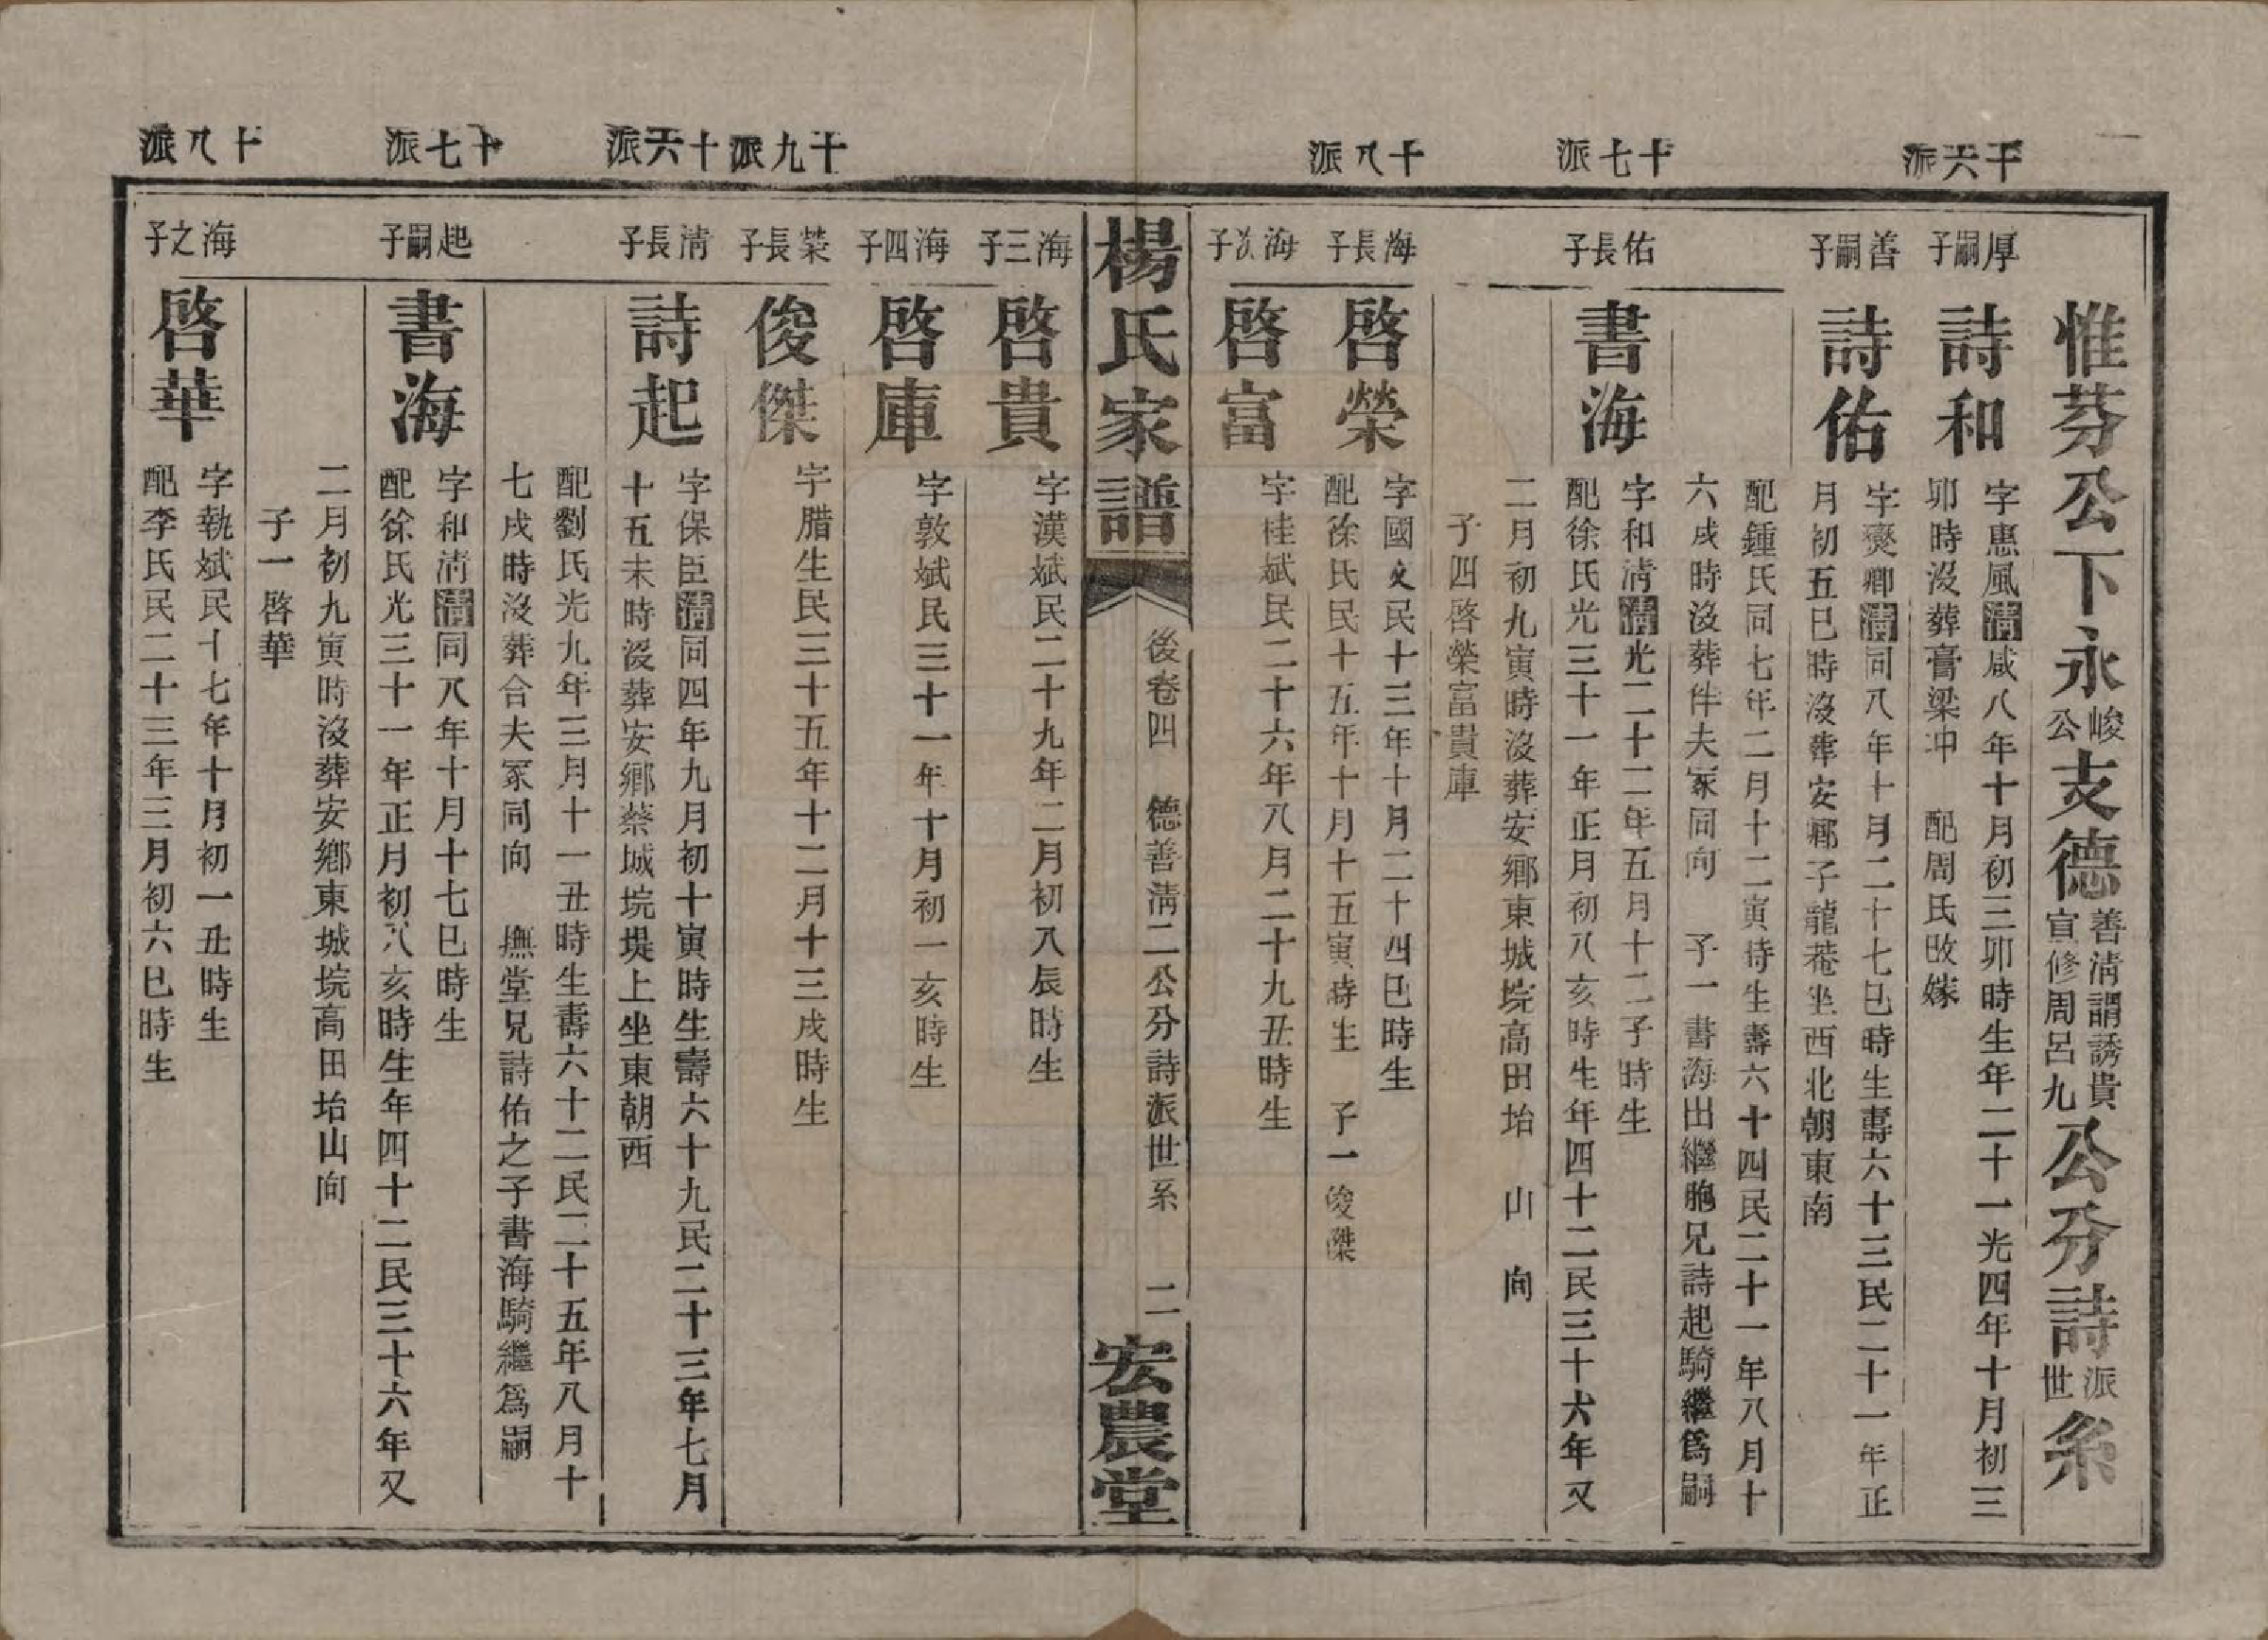 十六派
十七派
十八派
惟芬公下永峻公支德善淸謂誘貴宣修周呂九公分詩派世系
厚嗣子
詩和
字惠風淸咸八年十月初三卯時生年二十一光四年十月初三
卯時沒葬膏梁冲　配周氏改嫁
善嗣子
詩佑
字爕卿淸同八年十月二十七巳時生壽六十三民二十一年正
月初五巳時沒葬安鄕子龍菴坐西北朝東南
配鍾氏同七年二月十二寅時生壽六十四民二十一年八月十
六戌時沒葬伴夫冢同向　子一書海出繼胞兄詩起騎繼爲嗣
佑長子
書海
字和淸淸光二十二年五月十二子時生
配徐氏光三十一年正月初八亥時生年四十二民三十六年又
二月初九寅時沒葬安鄕東城垸高田坮　山　向
子四啓榮富貴庫
海長子
啓榮
字國文民十三年十月二十四巳時生
配徐氏民十五年十月十五寅時生　子一俊傑
海次子
啓富
字桂斌民二十六年八月二十九丑時生
楊氏家譜
後卷四　德善淸二公分詩派世系　二
宏農堂
十九派
十六派
十七派
十八派
海三子
啓貴
字漢斌民二十九年二月初八辰時生
海四子
啓庫
字敦斌民三十一年十月初一亥時生
榮長子
俊傑
字腊生民三十五年十二月十三戌時生
淸長子
詩起
字保臣淸同四年九月初十寅時生壽六十九民二十三年七月
十五未時沒葬安鄕蔡城垸堤上坐東朝西
配劉氏光九年三月十一丑時生壽六十二民二十五年八月十
七戌時沒葬合夫冢同向　撫堂兄詩佑之子書海騎繼爲嗣
起嗣子
書海
字和淸淸同八年十月十七巳時生
配徐氏光三十一年正月初八亥時生年四十二民三十六年又
二月初九寅時沒葬安鄕東城垸高田坮山向
子一啓華
海之子
啓華
字執斌民十七年十月初一丑時生
配李氏民二十三年三月初六巳時生